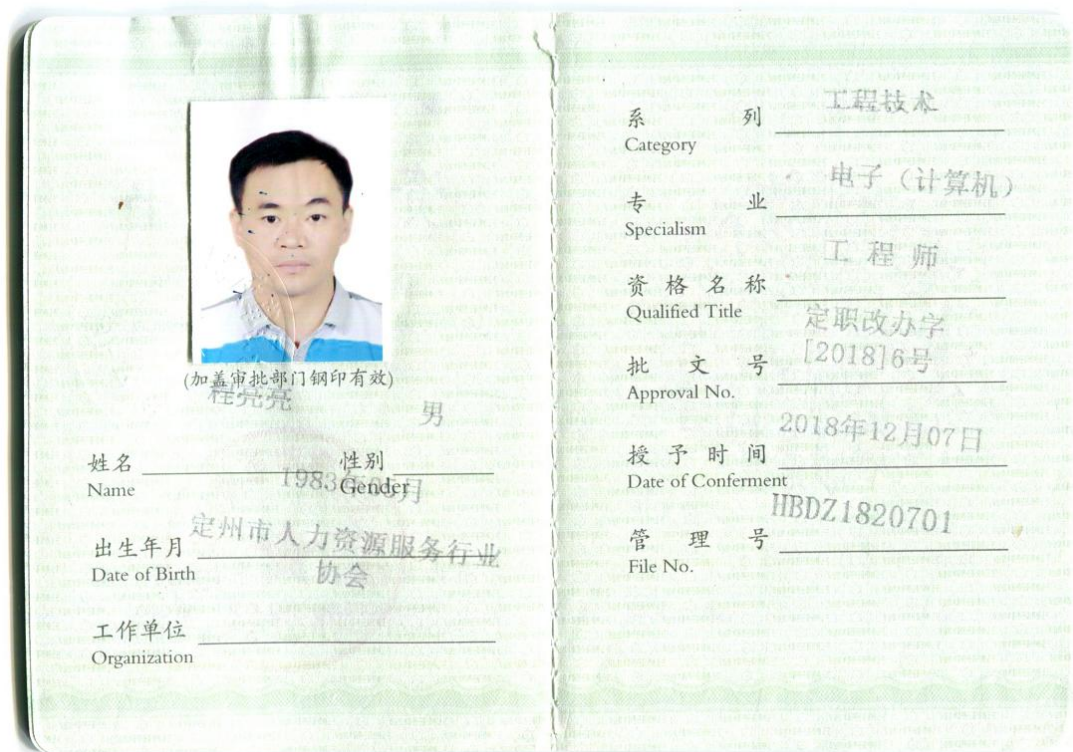 (加盖审批部门钢印有效)
程亮亮
男
姓名
性别
Name
Gender
1983年05月
出生年月
Date of Birth
定州市人力资源服务行业
协会
工作单位
Organization
工程技术
系列
Category
电子（计算机）
专业
Specialism
工程师
资格名称
Qualified Title
定职改办字
[2018]6号
批文号
Approval No.
2018年12月07日
授予时间
Date of Conferment
HBDZ1820701
管理号
File No.